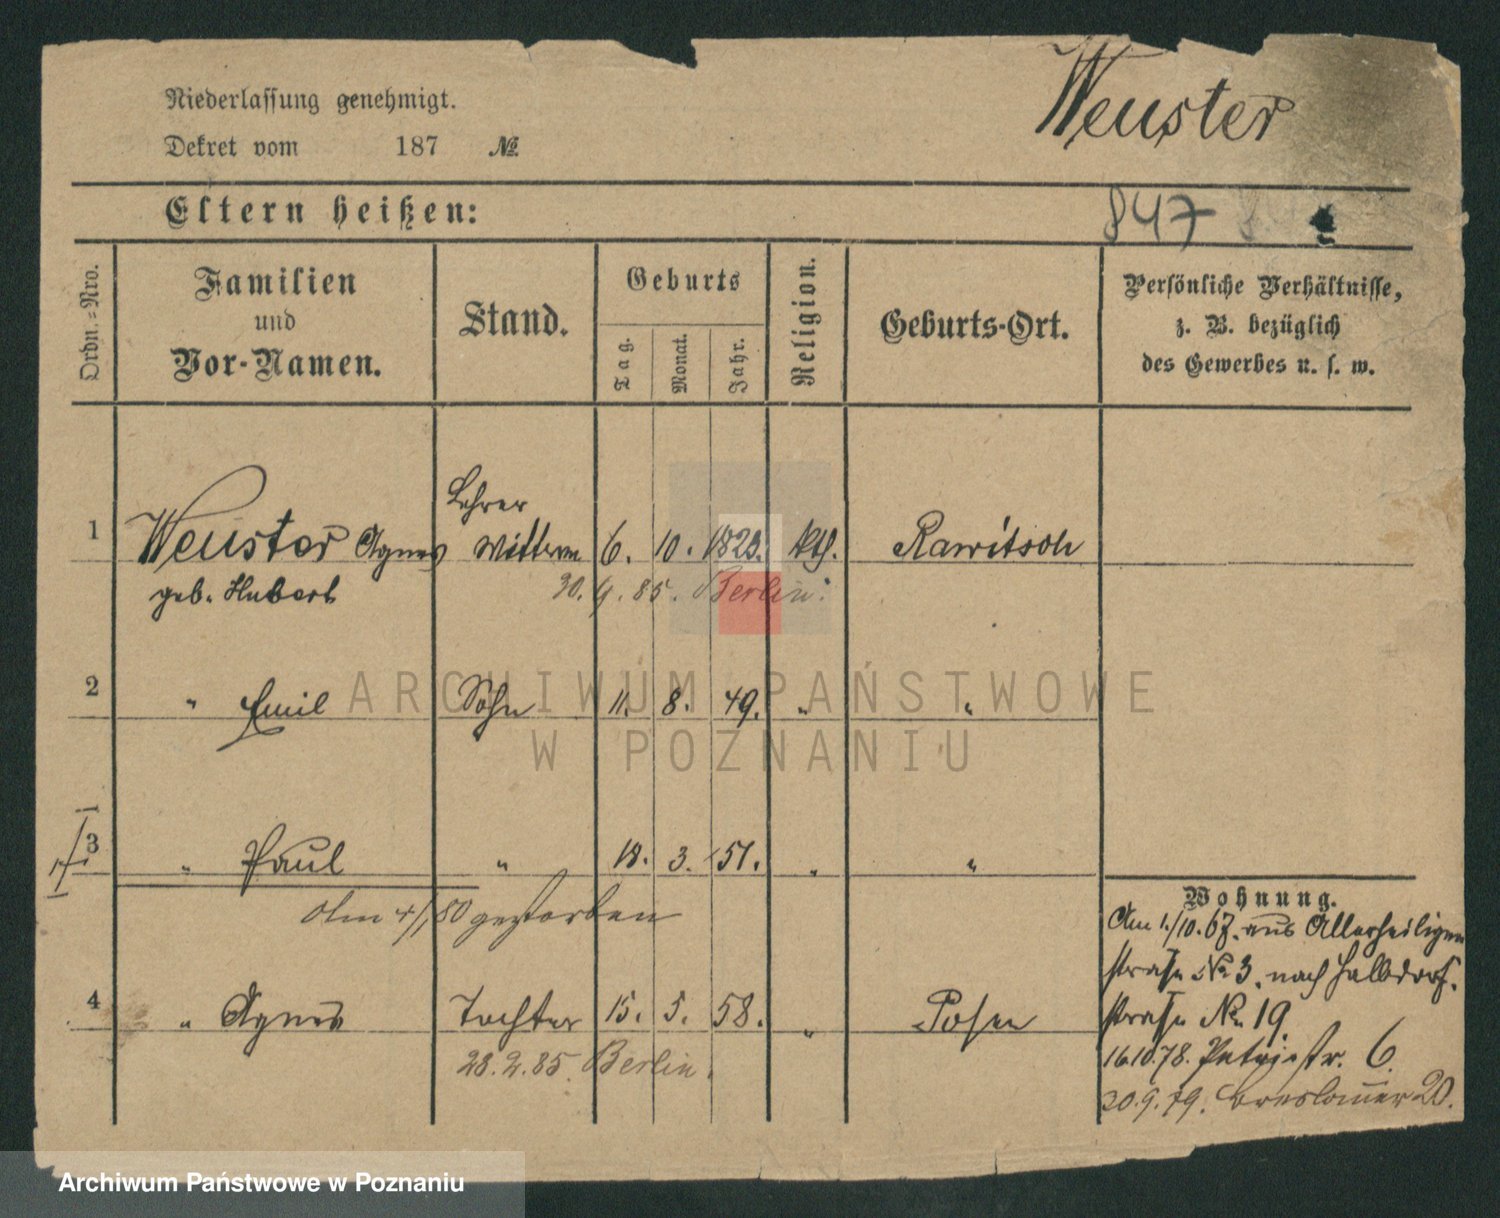 Niederlassung genehmigt.
Weuster
Dekret vom 187 №
Eltern heißen:
847
Ordn.-Nro.
Familien
und
Vor-Namen.
Stand.
Geburts
Tag.
Monat.
Jahr.
Religion.
Geburts-Ort.
Persönliche Verhältnisse,
z. B. bezüglich
des Gewerbes u. s. w.
Lehrer
1 Weuster Agnes Wittwe 6. 10. 1823. kth. Rawitsch
geb. Hubert
30. 9. 85. Berlin.
2 " Emil Sohn 11. 8. 49. " "
3 " Paul " 18. 3. 51. " "
Am 4/1 80 gestorben
Wohnung.
Am 1./10. 67. aus Allerheiligen
straße № 3. nach Halbdorf-
4 " Agnes Tochter 15. 5. 58. " Posen
straße № 19.
28. 2. 85. Berlin.
16.10.78. Petristr. 6.
30.9.79. Breslauer 20.
ARCHIWUM PAŃSTWOWE
W POZNANIU
Archiwum Państwowe w Poznaniu